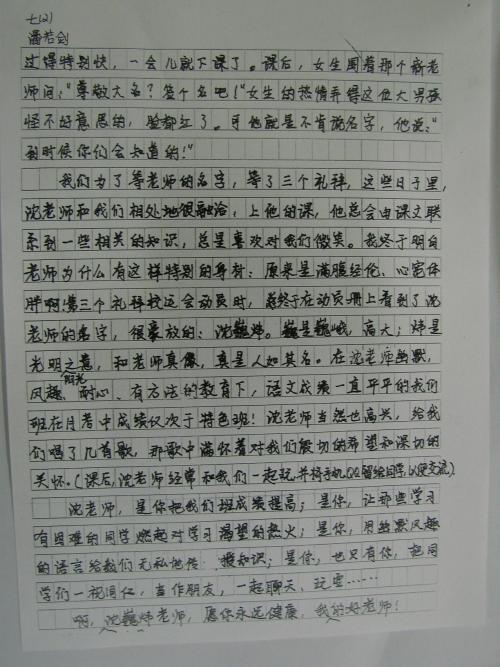 七(2)
潘若剑
过得特别快，一会儿就下课了。课后，女生围着那个新老
师问："尊敬大名？签个名吧！"女生的热情弄得这位大男孩
怪不好意思的，脸都红了。可他就是不肯说名字，他说："
到时候你们会知道的！"
我们为了等老师的名字，等了三个礼拜，这些日子里，
沈老师和我们相处地很融洽，上他的课，他总会由课文联
系到一些相关的知识，总是喜欢对我们微笑。我终于明白
老师为什么有这样特别的身材：原来是满腹经伦、心宽体
胖啊！第三个礼拜校运会动员时，终于在动员册上看到了沈
老师的名字，很豪放的：沈巍炜。巍是巍峨，高大；炜是
光明之意，和老师真像，真是人如其名。在沈老师幽默，
风趣、阳光、耐心、有方法的教育下，语文成绩一直平平的我们
班在月考中成绩仅次于特色班！沈老师当然也高兴，给我
们唱了几首歌，那歌中满怀着对我们殷切的希望和深切的
关怀。（课后，沈老师经常和我们一起玩，并将手机、QQ留给同学，以便交流）
沈老师，是你把我们班成绩提高；是你，让那些学习
有困难的同学燃起对学习渴望的热火；是你，用幽默风趣
的语言给我们无私地传授知识；是你，也只有你，把同
学们一视同仁，当作朋友，一起聊天、玩耍……
啊，沈巍炜老师，愿你永远健康，我的好老师！